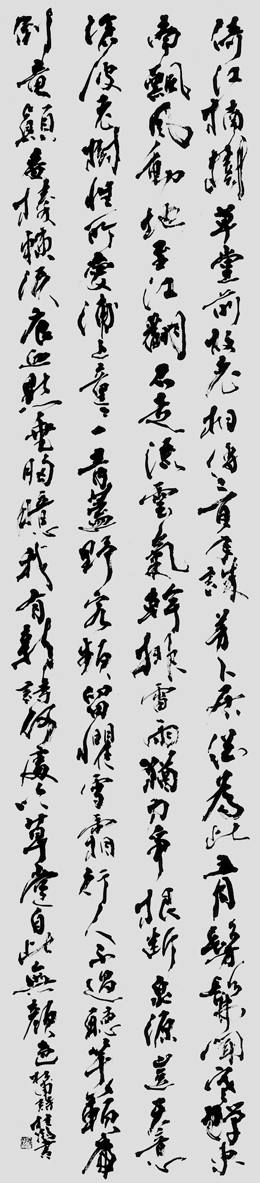 倚江楠樹草堂前故老相傳二百年誅茅卜居總為此五月髣髴聞寒蟬東
南飄風動地至江翻石走流雲氣幹排雷雨猶力爭根斷泉源豈天意
滄波老樹性所愛浦上童々一青蓋野客頻留懼雪霜行人不過聽竽籟虎
倒竜顛委榛棘淚痕血點垂胸臆我有新詩何處吟草堂自此無顏色 杜甫詩 書